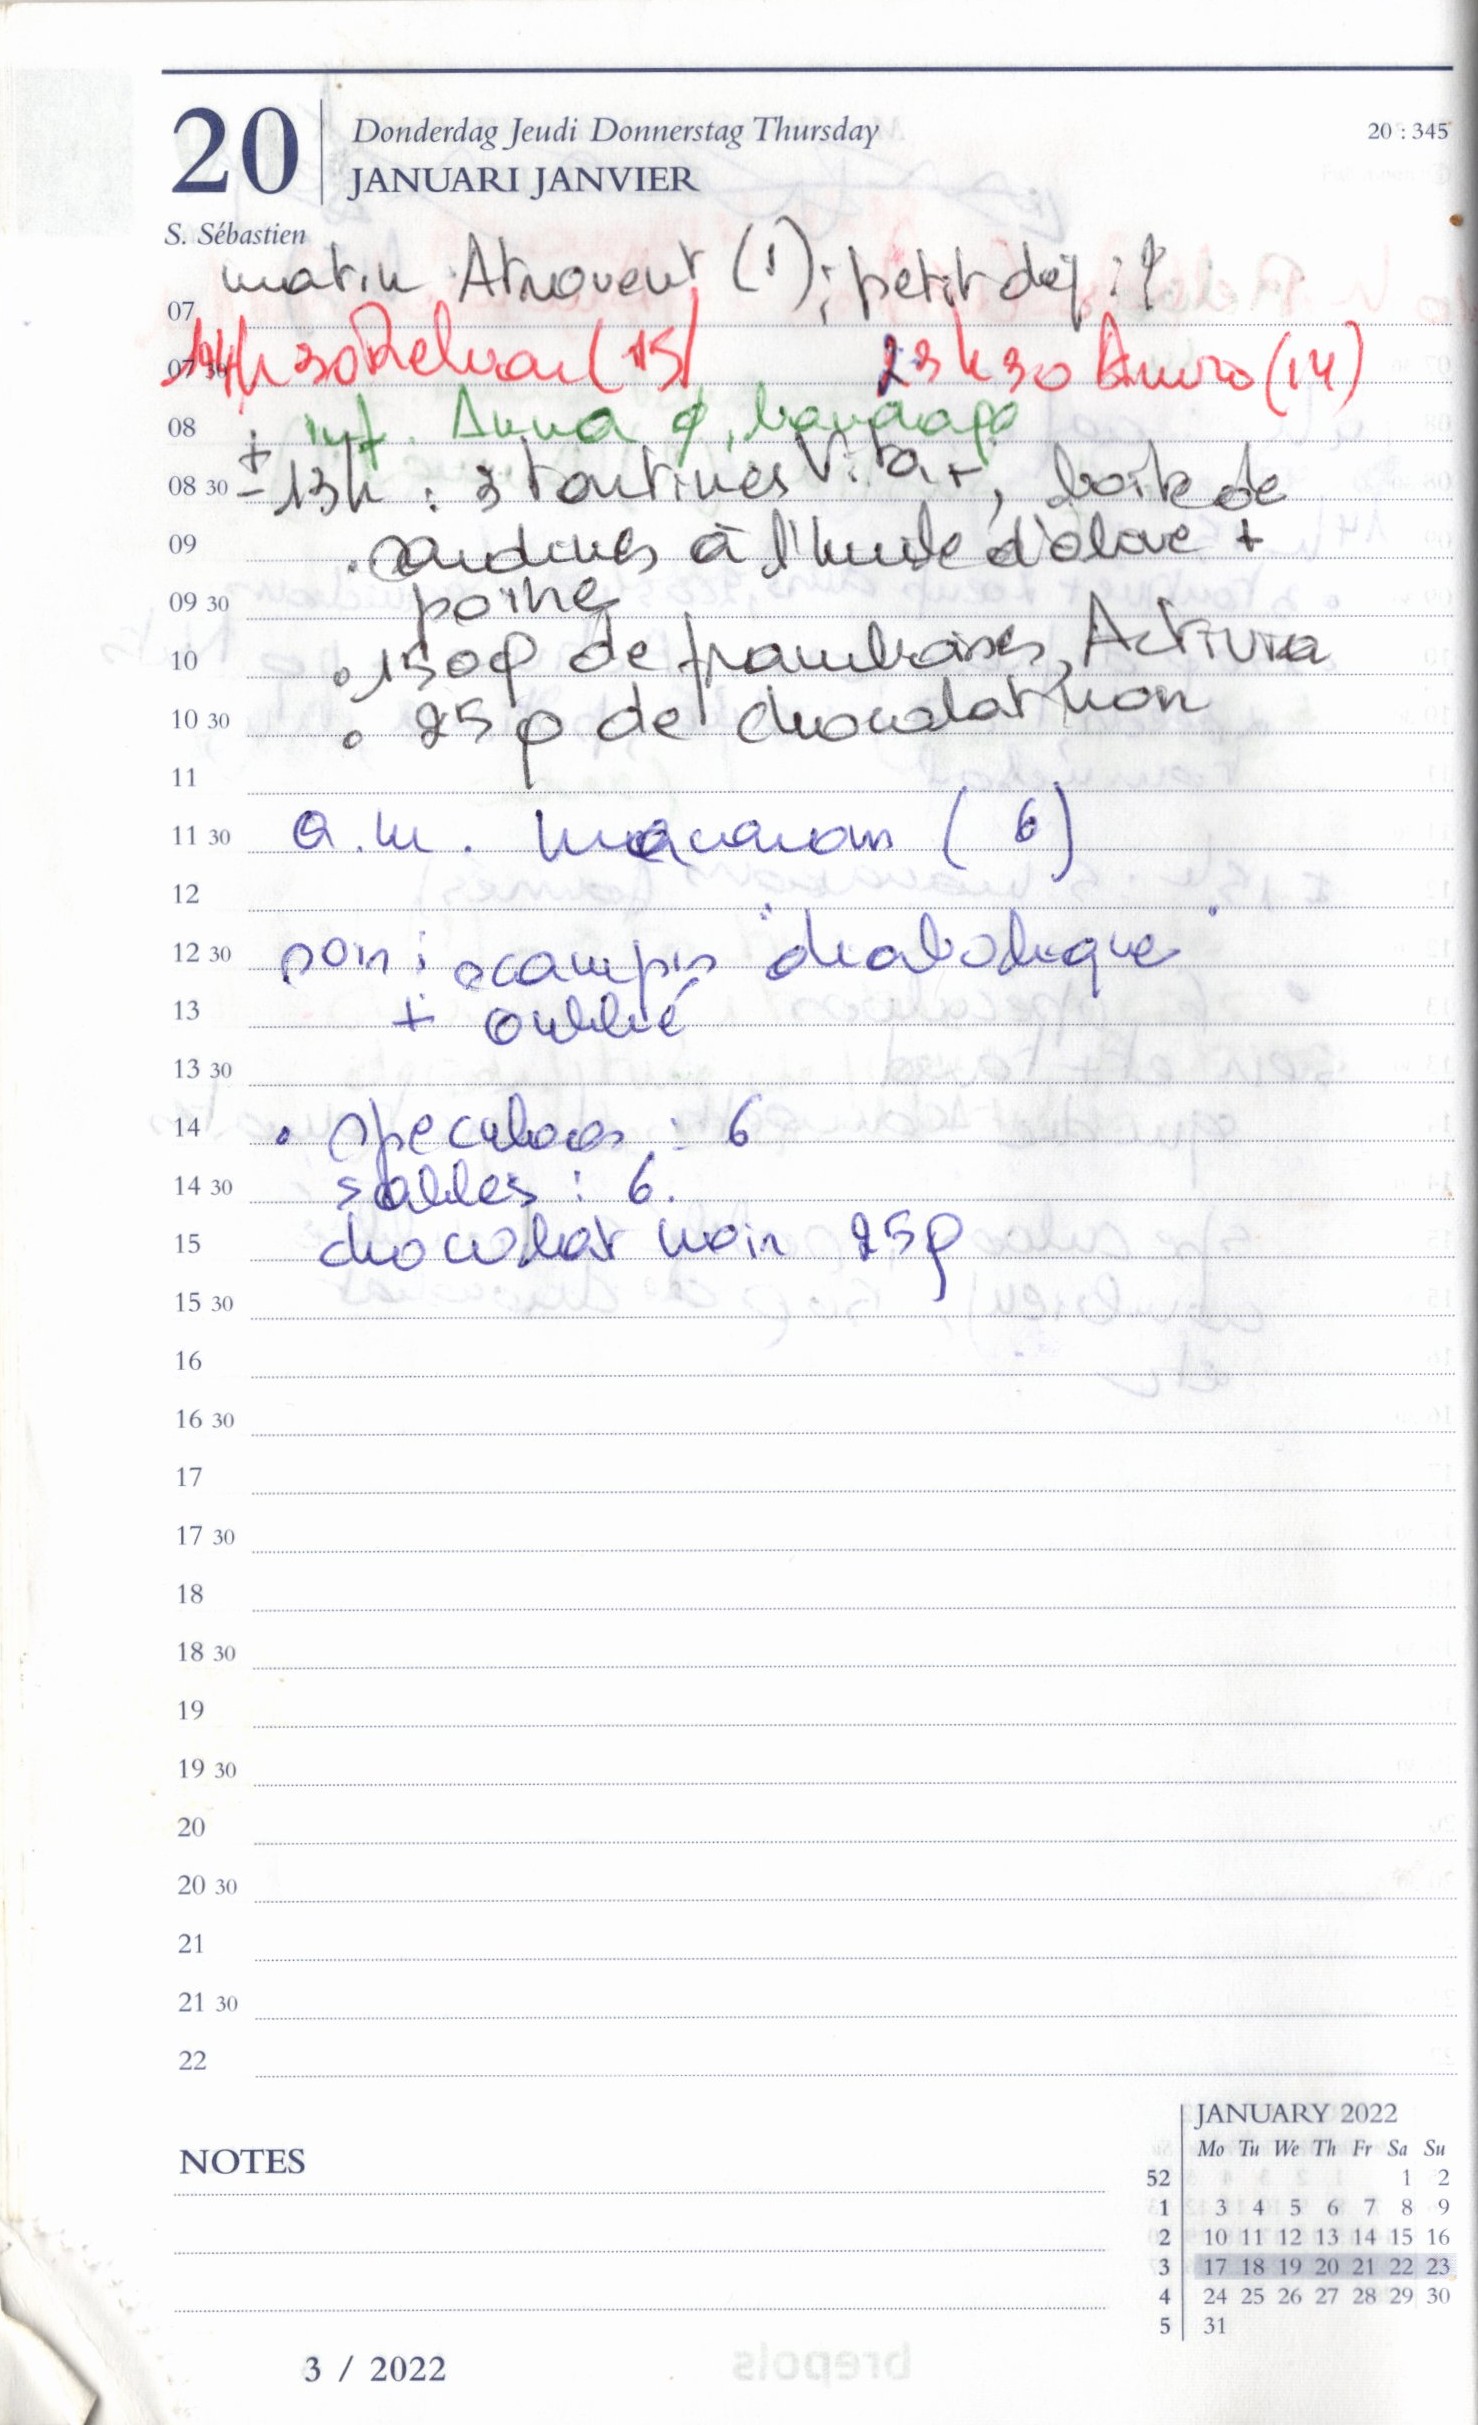 20
Donderdag Jeudi Donnerstag Thursday
20 : 345
JANUARI JANVIER
S. Sébastien
matin Atrovent (1); petit déj : ?
07
14h30 Relvar (15) 23h30 Anoro (14)
07 30
08 inf. Anna, bandage
08 30 ± 13h : 3 tartines Vita+, boîte de
09 sardines à l'huile d'olive +
09 30 poire
10 150g de framboises, Activia
10 30 25g de chocolat noir
11
11 30 a.m. macarons (6)
12
12 30 soir : scampis "diabolique"
13 + oublié
13 30
14 speculoos : 6
14 30 sablés : 6.
15 chocolat noir 25g
15 30
16
16 30
17
17 30
18
18 30
19
19 30
20
20 30
21
21 30
22
NOTES
JANUARY 2022
Mo Tu We Th Fr Sa Su
52 1 2
1 3 4 5 6 7 8 9
2 10 11 12 13 14 15 16
3 17 18 19 20 21 22 23
4 24 25 26 27 28 29 30
5 31
3 / 2022
brepols